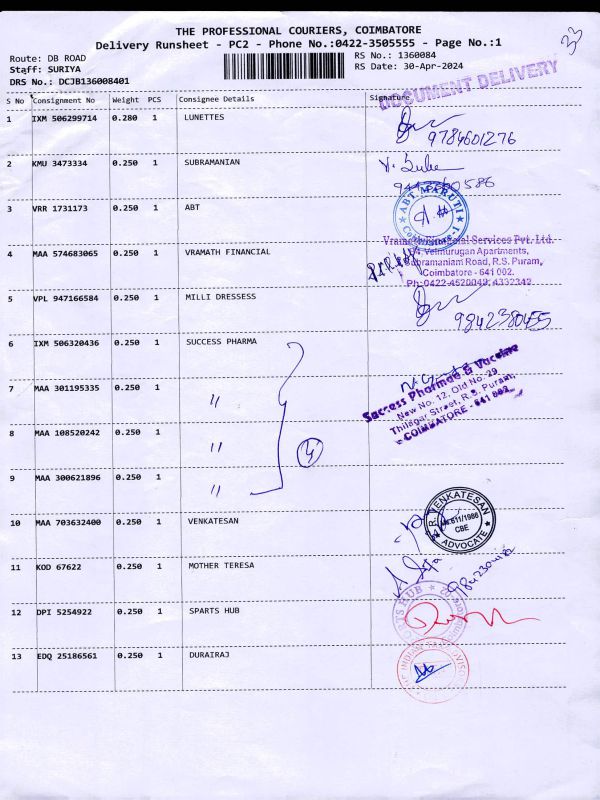 THE PROFESSIONAL COURIERS, COIMBATORE
Delivery Runsheet - PC2 - Phone No.:0422-3505555 - Page No.:1
33
Route: DB ROAD
Staff: SURIYA
DRS No.: DCJB136008401
RS No.: 1360084
RS Date: 30-Apr-2024
DOCUMENT DELIVERY
S No Consignment No Weight PCS Consignee Details Signature
1 IXM 506299714 0.280 1 LUNETTES
9784601276
2 KMU 3473334 0.250 1 SUBRAMANIAN
3 VRR 1731173 0.250 1 ABT
ABT MARUTI
4 MAA 574683065 0.250 1 VRAMATH FINANCIAL
Vramath Financial Services Pvt. Ltd.
Velmurugan Apartments,
Subramaniam Road, R.S. Puram,
Coimbatore - 641 002.
Ph: 0422-4520049, 4332349
5 VPL 947166584 0.250 1 MILLI DRESSESS
9842380455
6 IXM 506320436 0.250 1 SUCCESS PHARMA
7 MAA 301195335 0.250 1 "
8 MAA 108520242 0.250 1 "
4
9 MAA 300621896 0.250 1 "
Success Pharmae & Vaccine
New No. 12, Old No. 29
Thilagar Street, R.S. Puram,
COIMBATORE - 641 002
10 MAA 703632400 0.250 1 VENKATESAN
R. VENKATESAN
611/1986
CBE
ADVOCATE
11 KOD 67622 0.250 1 MOTHER TERESA
12 DPI 5254922 0.250 1 SPARTS HUB
13 EDQ 25186561 0.250 1 DURAIRAJ